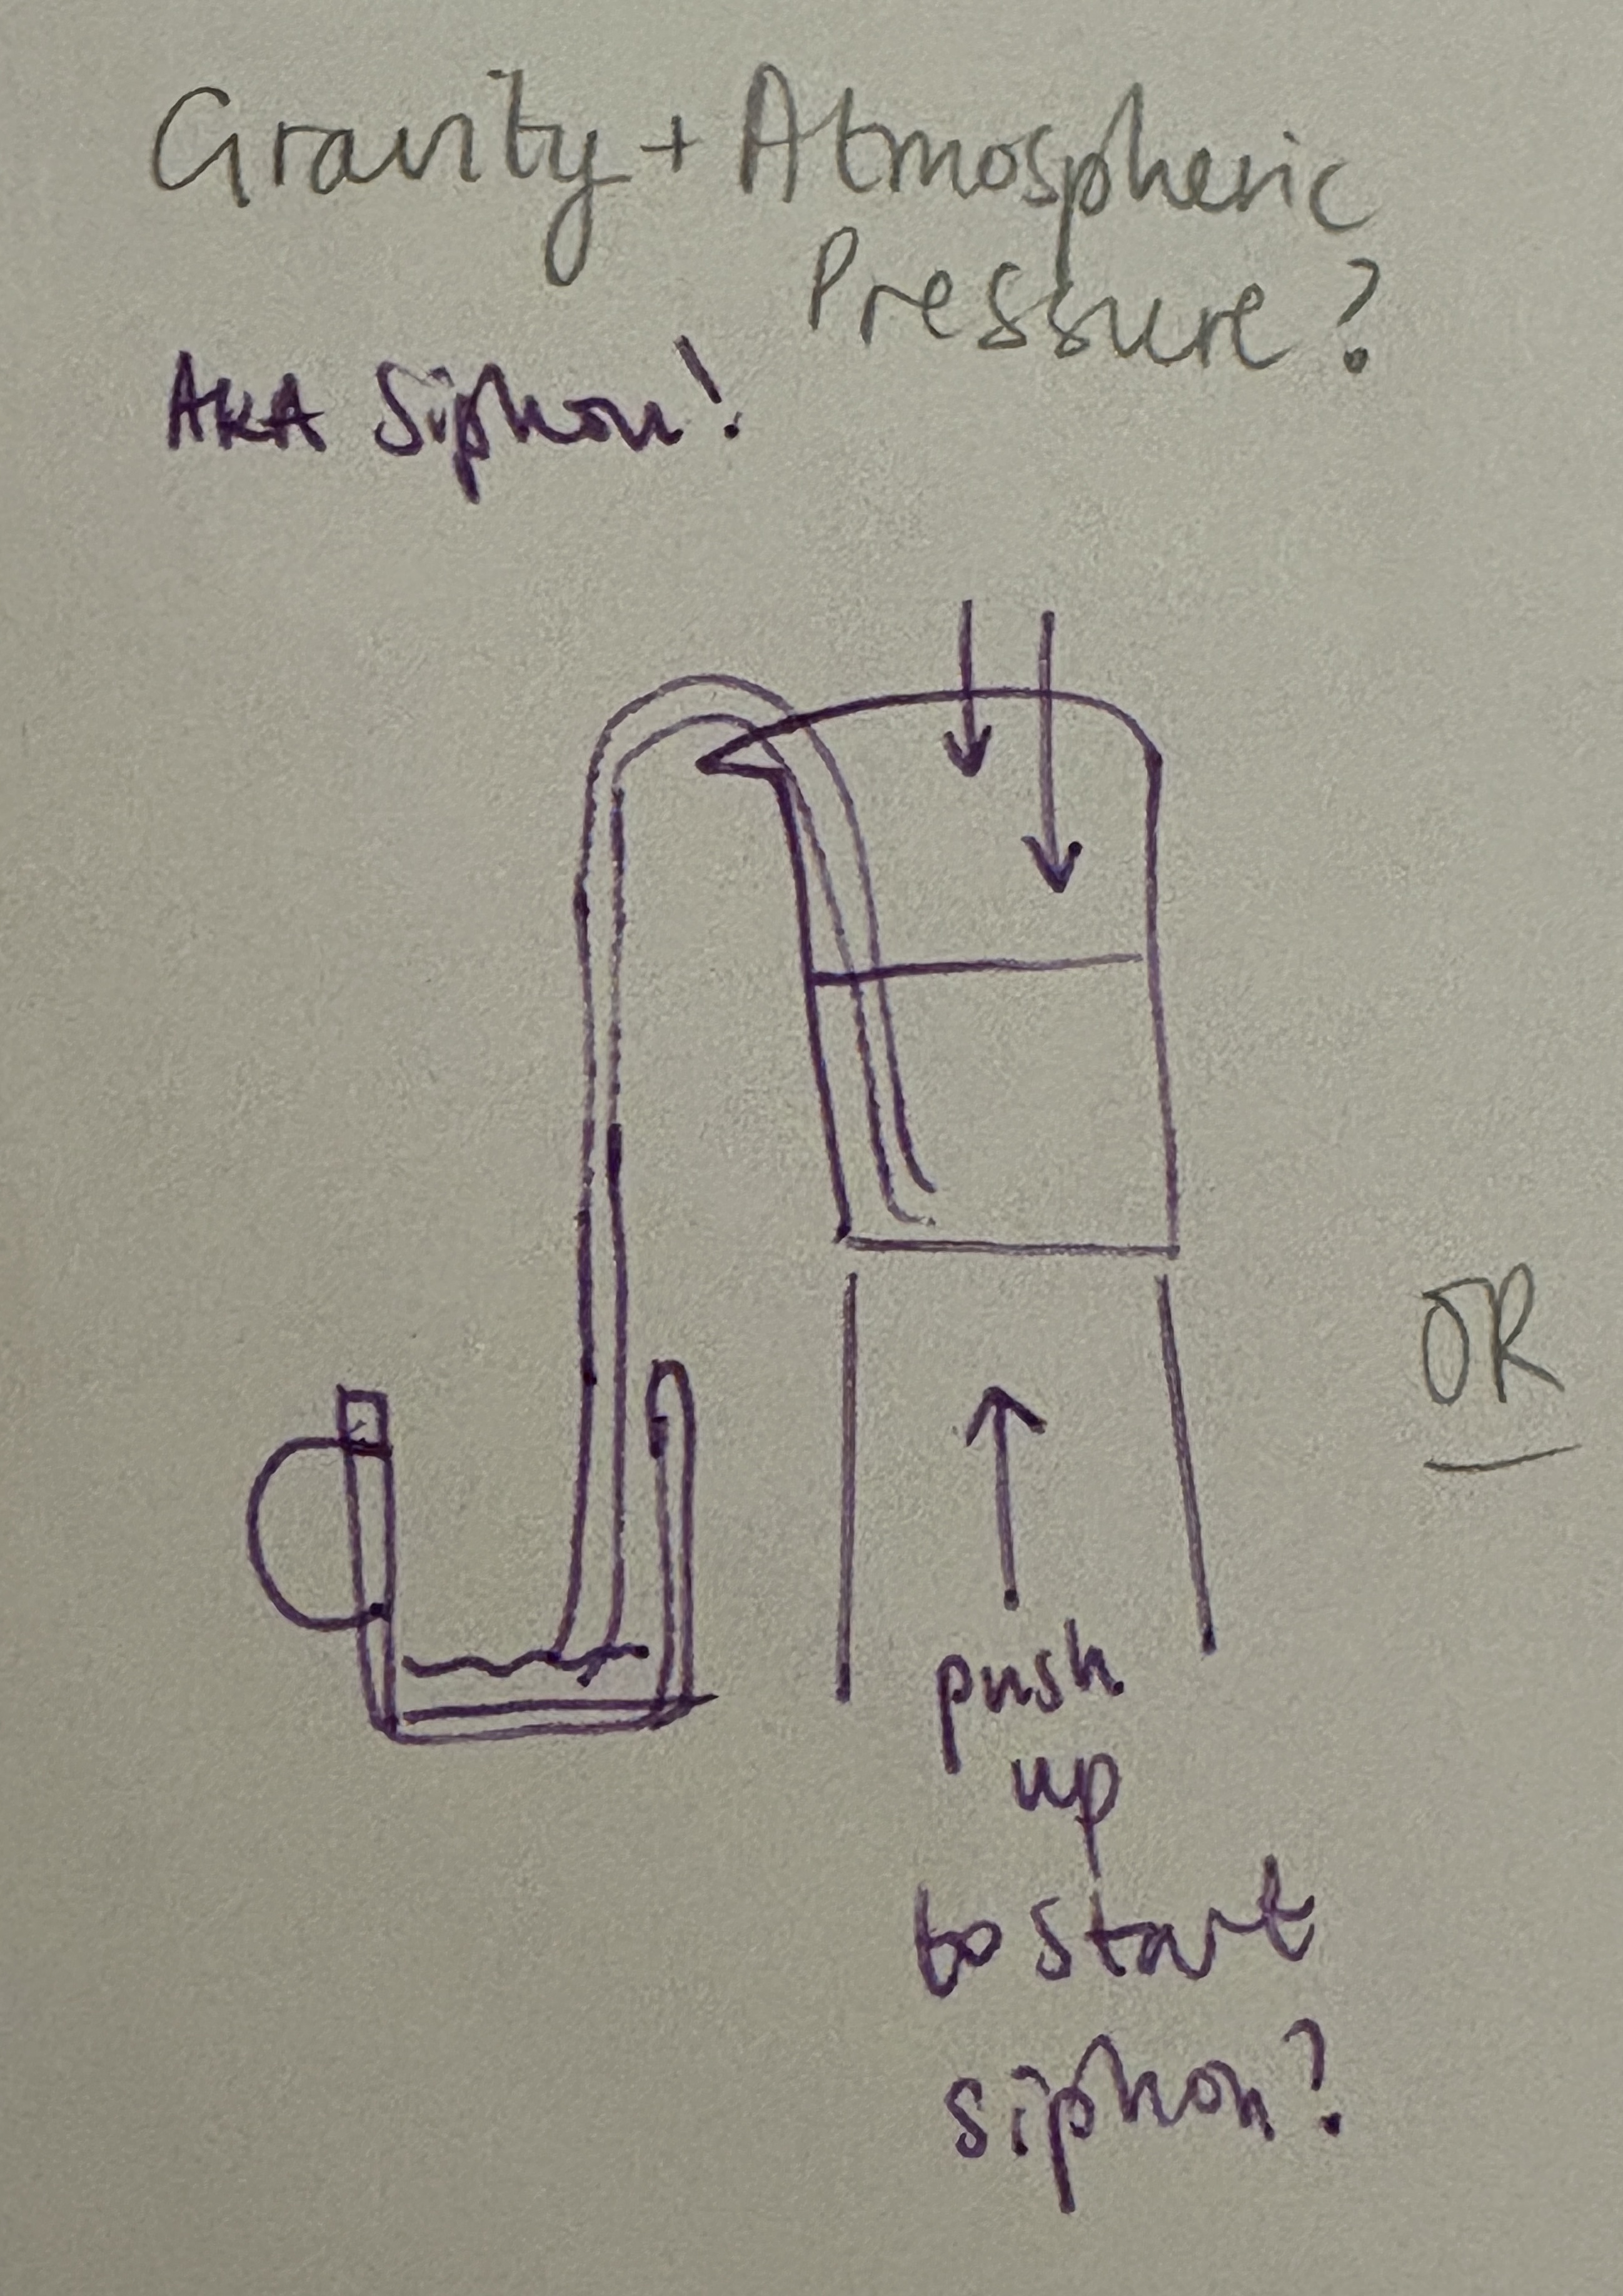 Gravity + Atmospheric
Pressure?
AKA Siphon!
OR
push
up
to start
siphon?